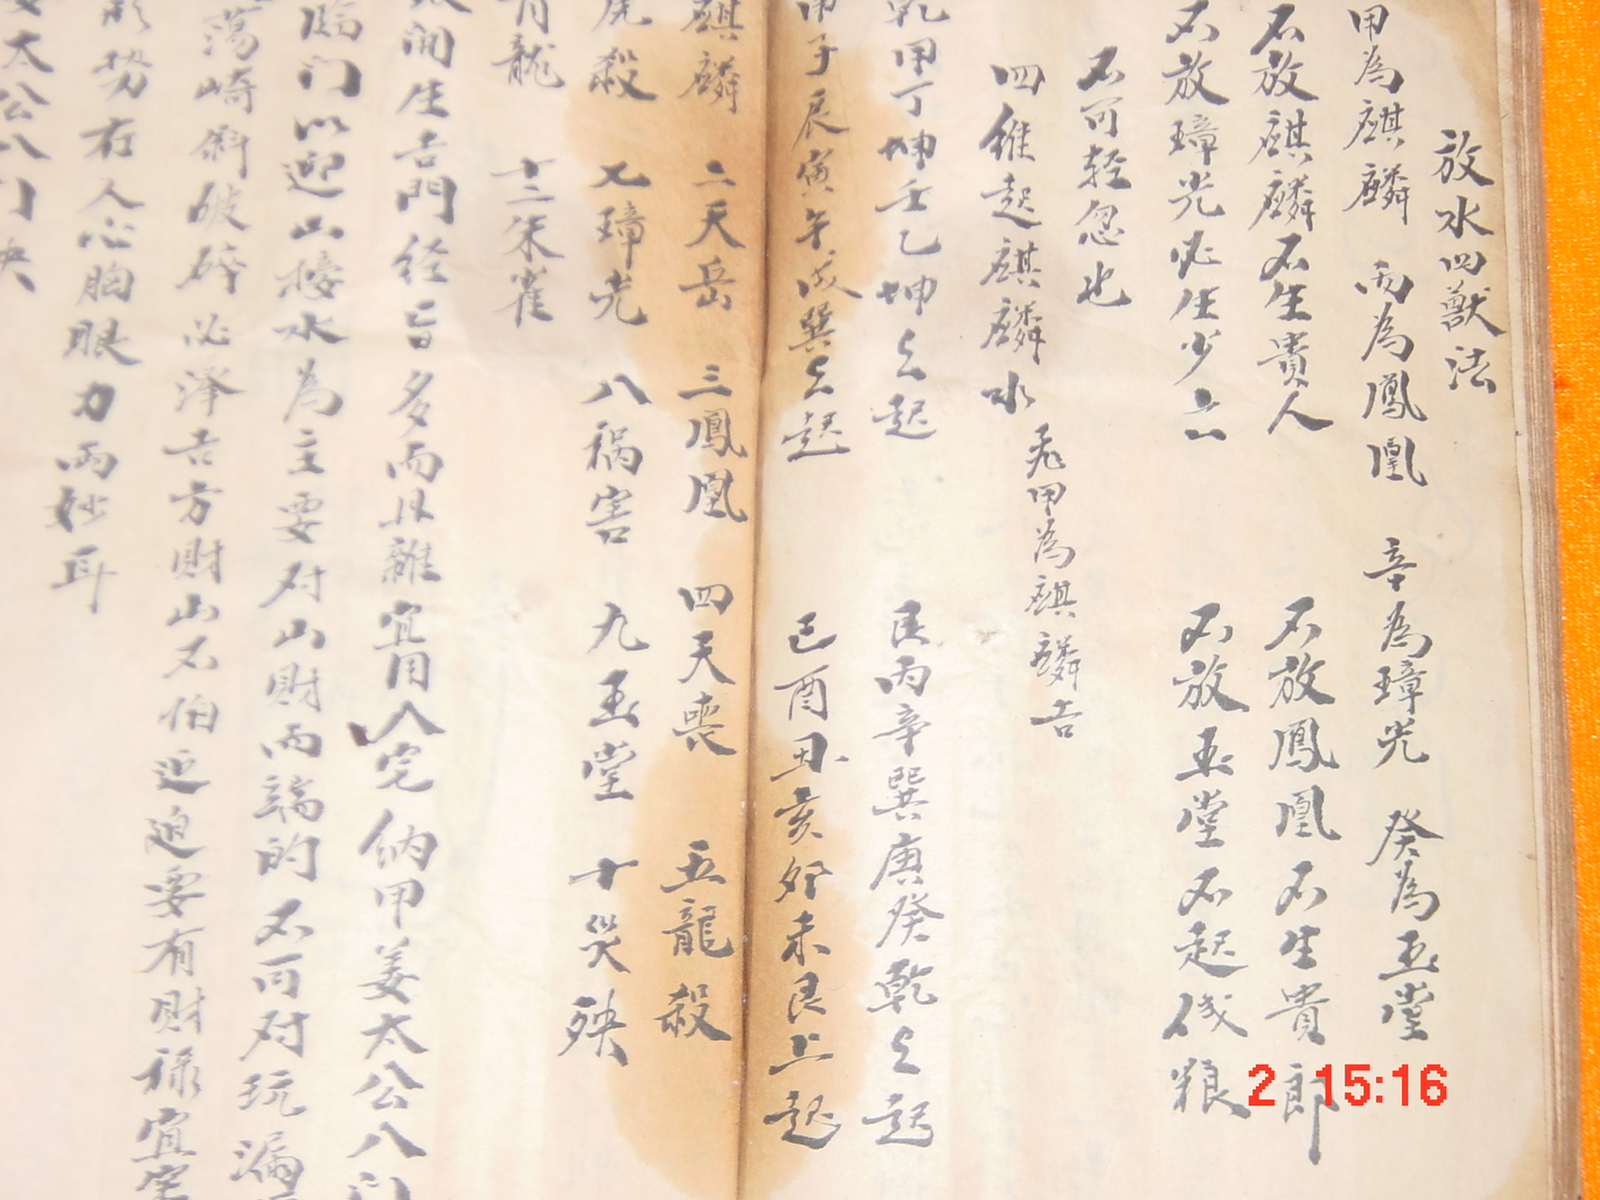 放水四獸法
甲為麒麟 丙為鳳凰 辛為璋光 癸為玉堂
不放麒麟不生貴人 不放鳳凰不生貴郎
不放璋光必生少亡 不放玉堂不起錢粮
不可輕忽也
四維起麒麟水 飛甲為麒麟吉
乾甲丁坤壬乙坤上起 艮丙辛巽庚癸乾上起
申子辰寅午戌巽上起 巳酉丑亥卯未艮上起
麒麟 二天岳 三鳳凰 四天喪 五龍殺
虎殺 七璋光 八祸害 九玉堂 十災殃
青龍 十二朱雀
開生吉門经旨多而且雜宜用八宅納甲姜太公八门
臨门以迎山接水為主要对山財两端的不可对玩漏
蕩崎斜破碎必择吉方財山不怕迫迫要有財禄宜宅
形势在人心胸眼力两妙耳
姜太公八门
2 15:16